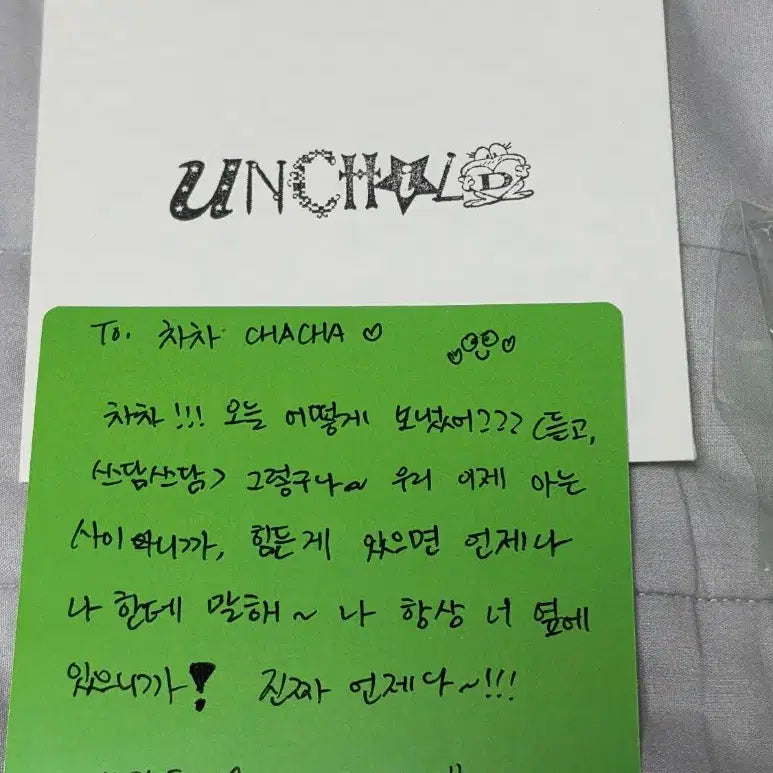 UNCHiLD
To. 차차 CHACHA ♡
차차!!! 오늘 어떻게 보냈어??? (듣고,
쓰담쓰담) 그렇구나~ 우리 이제 아는
사이니까, 힘든게 있으면 언제나
나 한테 말해~ 나 항상 너 옆에
있으니까! 진짜 언제다~!!!